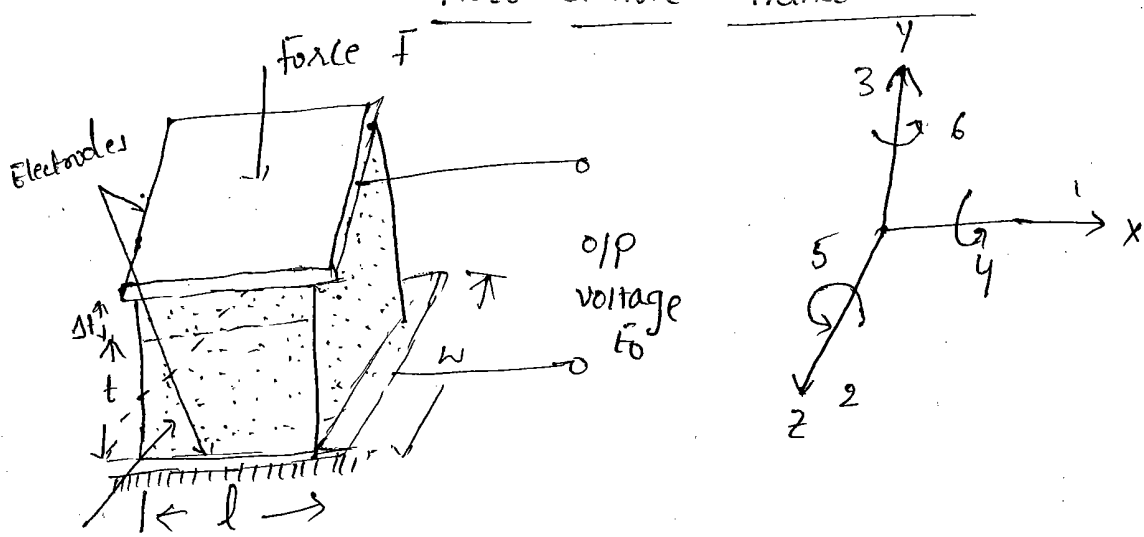 Force F
Electrodes
O/P
voltage
E0
Δt
t
w
l
Y
3
6
1
X
4
5
Z
2